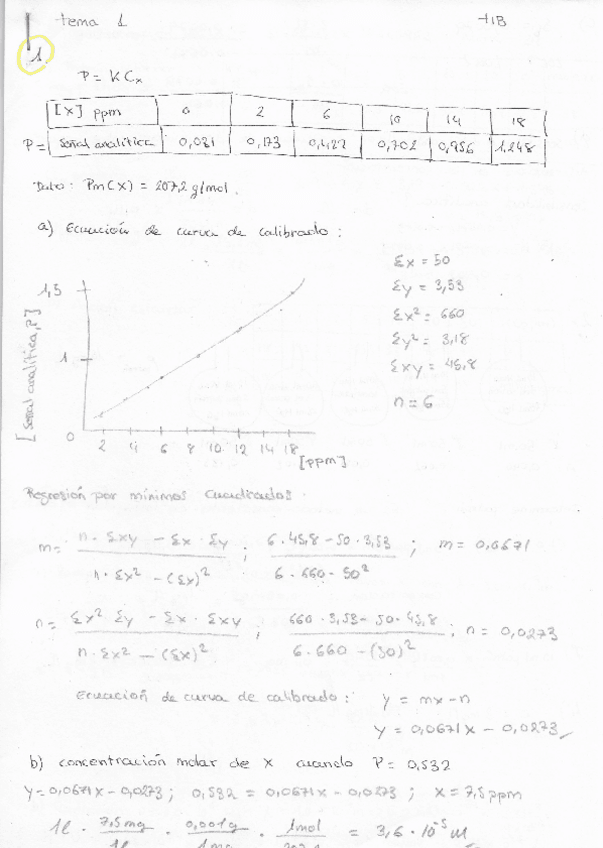 tema 1 H1B
1.
P = K Cx
[X] ppm 0 2 6 10 14 18
P = Señal analítica 0,031 0,173 0,422 0,702 0,956 1,248
Dato: Pm(X) = 207,2 g/mol.
a) Ecuación de curva de calibrado:
Σx = 50
Σy = 3,53
Σx² = 660
Σy² = 3,18
Σxy = 45,8
n = 6
[Señal analítica, P]
1,5
1
0
2 4 6 8 10 12 14 16 18
[ppm]
Regresión por mínimos cuadrados.
m = n · Σxy - Σx · Σy / n · Σx² - (Σx)² ; 6 · 45,8 - 50 · 3,53 / 6 · 660 - 50² ; m = 0,0671
n = Σx² Σy - Σx · Σxy / n · Σx² - (Σx)² ; 660 · 3,53 - 50 · 45,8 / 6 · 660 - (50)² ; n = 0,0273
Ecuación de curva de calibrado: y = mx - n
y = 0,0671x - 0,0273
b) concentración molar de X cuando P = 0,532
y = 0,0671x - 0,0273 ; 0,532 = 0,0671x - 0,0273 ; x = 7,5 ppm
1l · 7,5 mg / 1l · 0,001g / 1mg · 1mol = 3,6 · 10⁻⁵ M